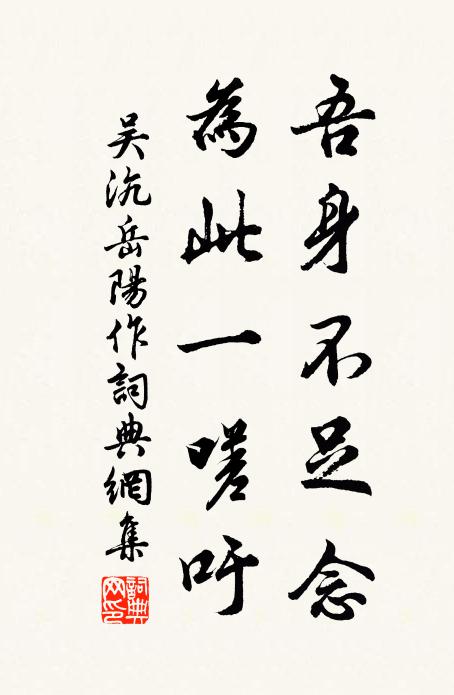 吾身不足念
為此一嗟吁
吴沆岳陽作詞典網集
詞典網印